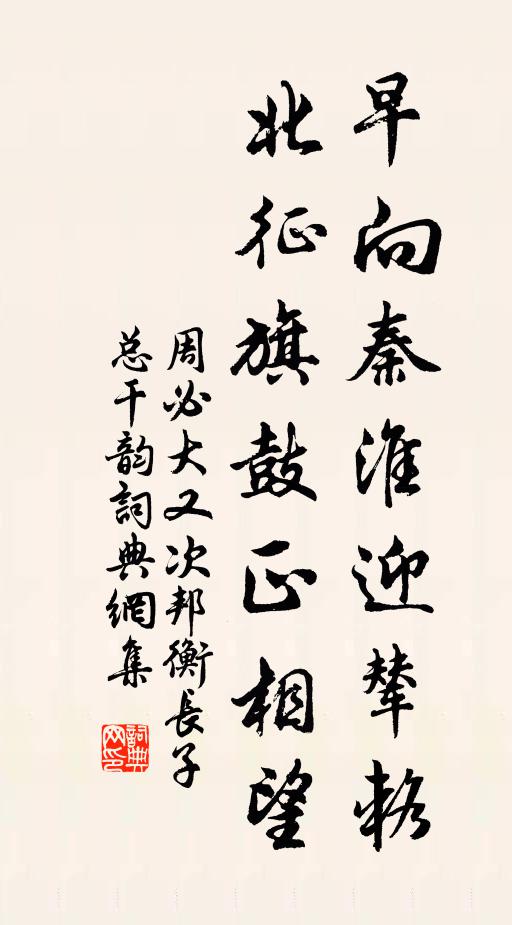 早向秦淮迎輦輅
北征旗鼓正相望
周必大又次邦衡長子
总干韵詞典網集
詞典
网印